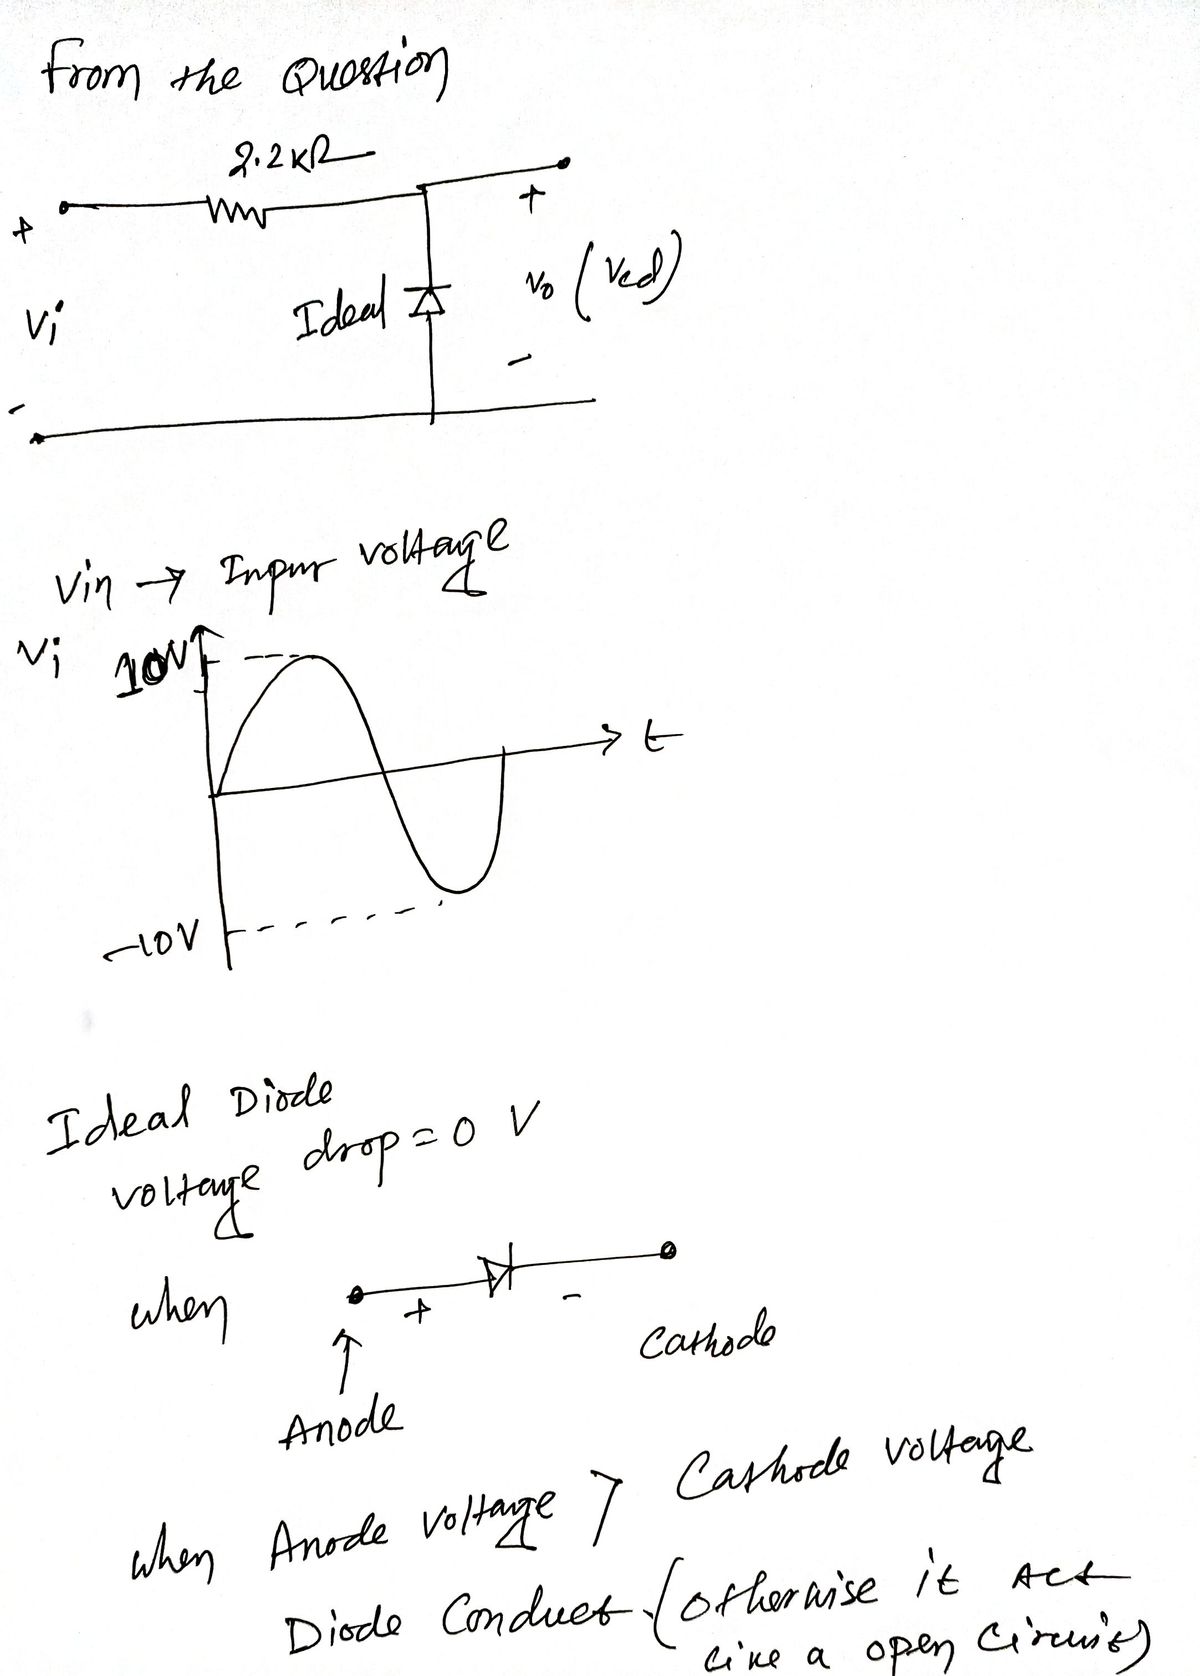 From the Question
2.2KΩ
+
+
Vi
Ideal
Vo (Vcd)
-
-
Vin → Input voltage
Vi 10V
t
-10V
Ideal Diode
voltage drop = 0 V
when
+ -
Cathode
Anode
when Anode voltage > Cathode voltage
Diode Conduct. (otherwise it Act
like a open circuit)